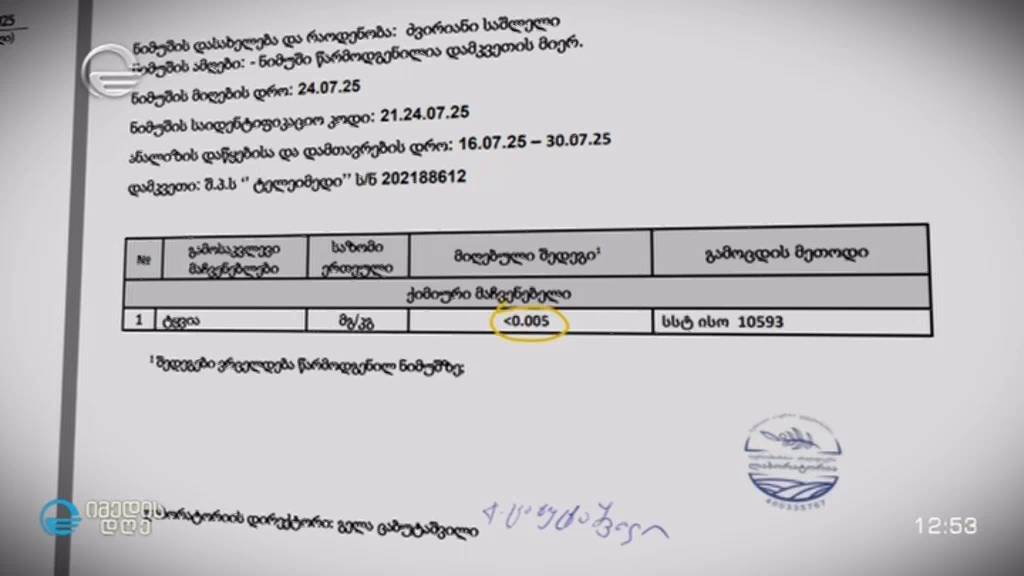 ნიმუშის დასახელება და რაოდენობა: ძვირიანი საშლელი
ნიმუშის აღება: - ნიმუში წარმოდგენილია დამკვეთის მიერ.
ნიმუშის მიღების დრო: 24.07.25
ნიმუშის საიდენტიფიკაციო კოდი: 21.24.07.25
ანალიზის დაწყებისა და დამთავრების დრო: 16.07.25 – 30.07.25
დამკვეთი: შ.პ.ს “ ტელეიმედი” ს/ნ 202188612
№ გამოსაკვლევი მაჩვენებლები საზომი ერთეული მიღებული შედეგი¹ გამოცდის მეთოდი
ქიმიური მაჩვენებელი
1 ტყვია მგ/კგ <0.005 სსტ ისო 10593
¹ შედეგები ვრცელდება წარმოდგენილ ნიმუშზე;
ლაბორატორია
ლაბორატორიის დირექტორი: გელა ცაბუტაშვილი
იმედის
დღე
12:53